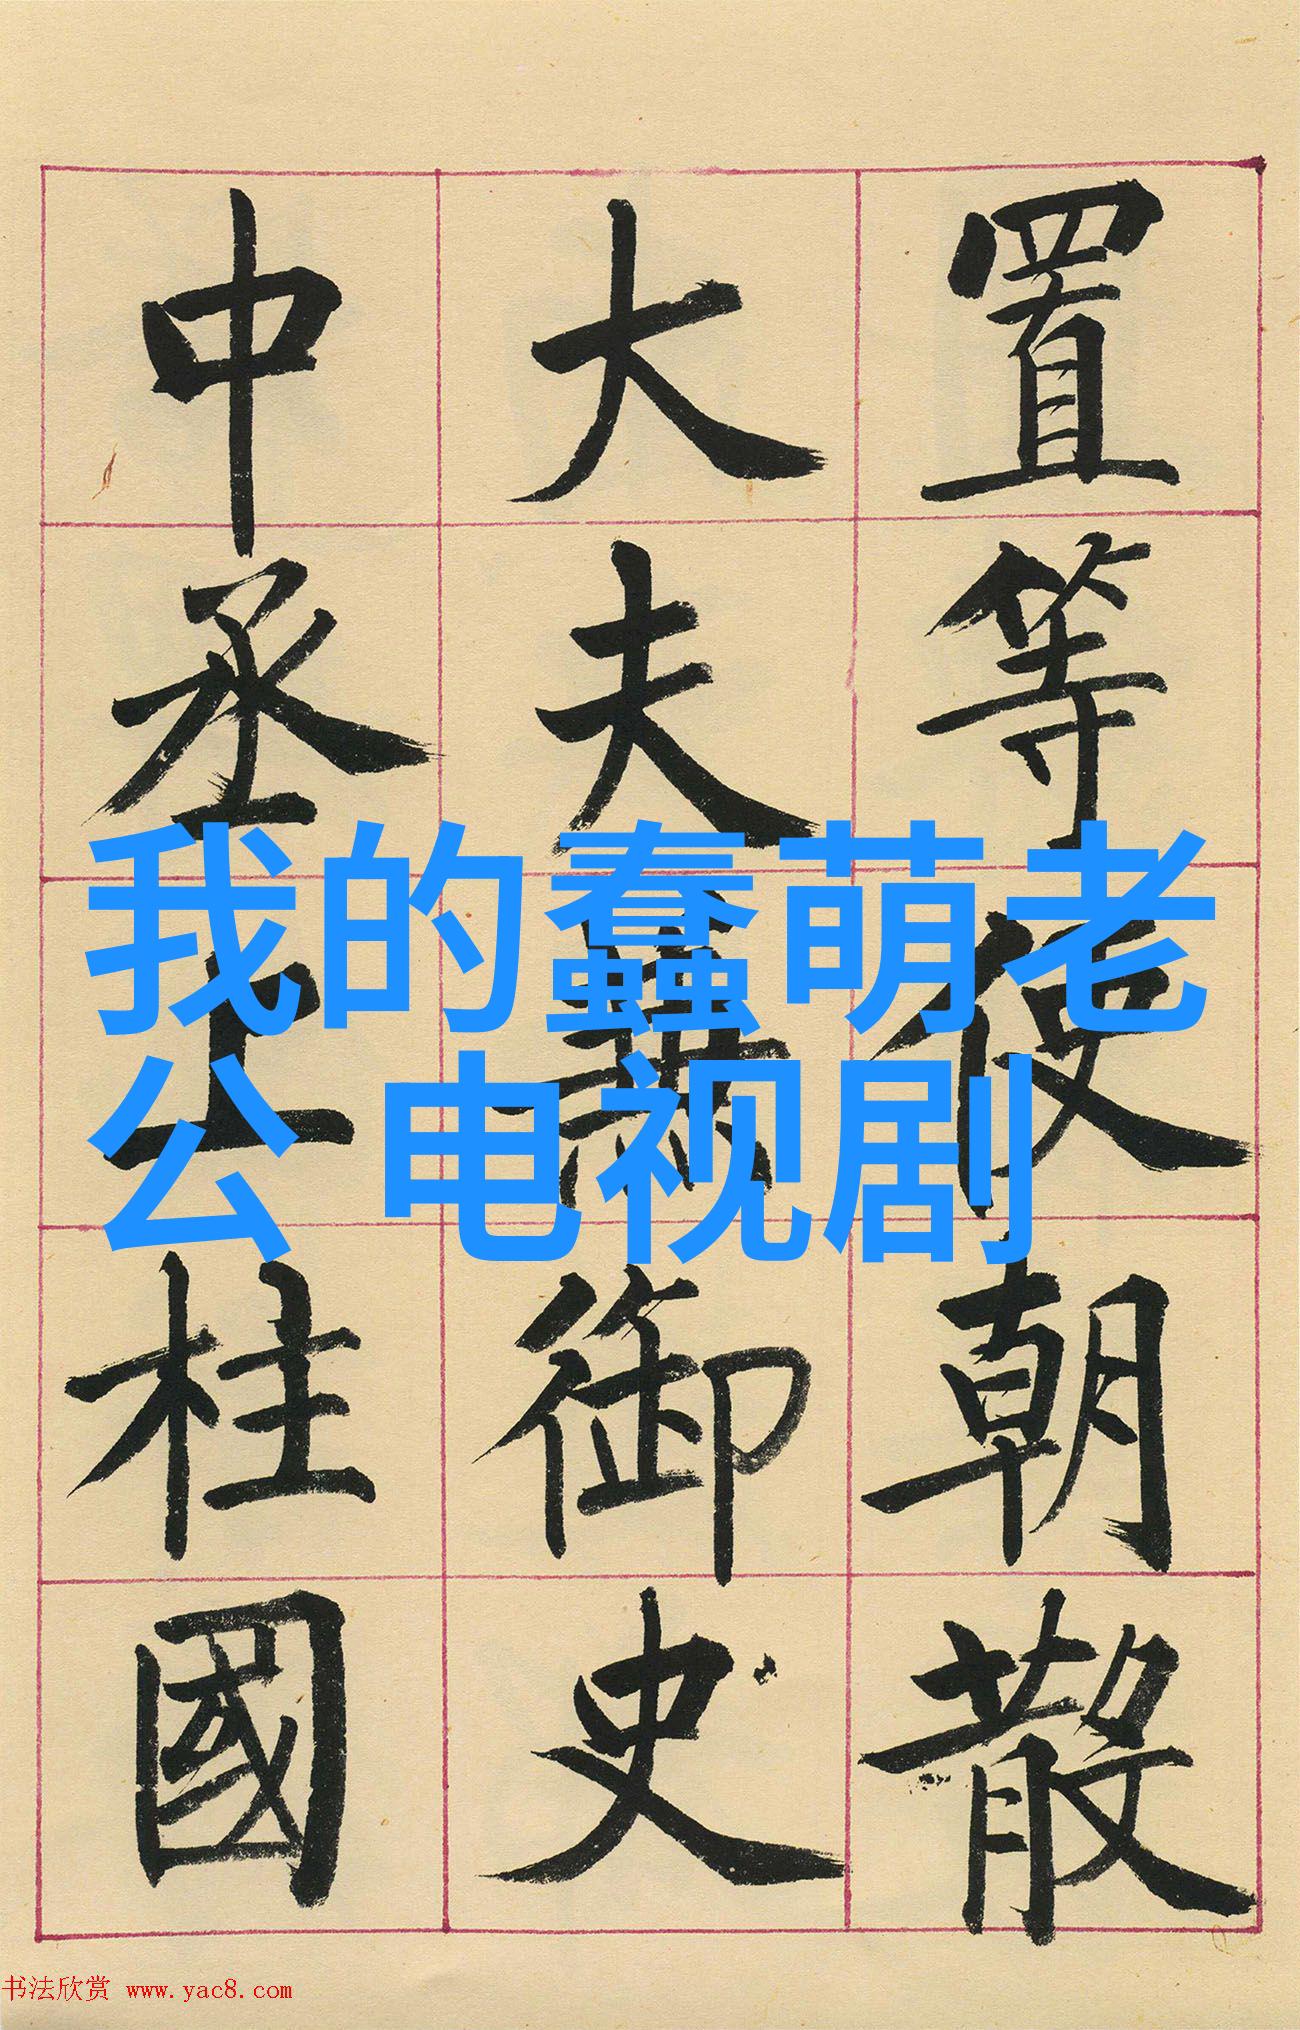 置等使朝散
大夫兼御史
中丞上柱國
我的蠢萌老
公 电视剧
书法欣赏 www.yac8.com